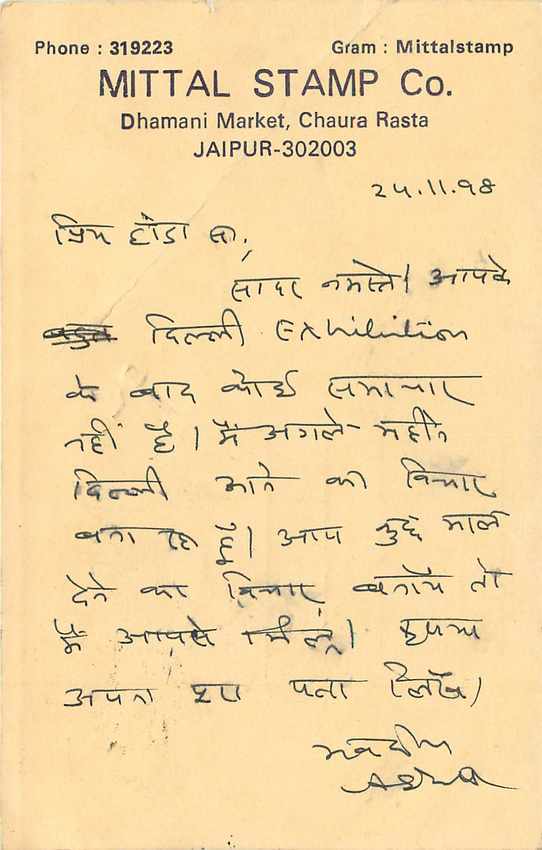 Phone : 319223 Gram : Mittalstamp
MITTAL STAMP Co.
Dhamani Market, Chaura Rasta
JAIPUR-302003
24.11.98
प्रिय होंडा सा.,
सादर नमस्ते। आपके
दिल्ली Exhibition
के बाद कोई समाचार
नहीं है। मैं अगले महीने
दिल्ली आने का विचार
बना रहा हूँ। आप कुछ माल
देने का विचार बनायें तो
मैं आपसे मिलूं। कृपया
अपना पता लिखें।
भवदीय